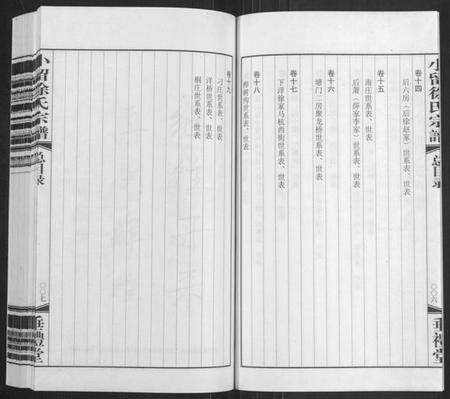 小留徐氏宗谱
总目录
〇〇六
垂礼堂
卷十四
后六房（后徐赵家）世系表、世表
卷十五
南庄世系表、世表
后萧（薛家李家）世系表、世表
卷十六
塘门二房聚龙桥世系表、世表
卷十七
下洋徐家马杭西街世系表、世表
卷十八
桦树沟世系表、世表
卷十九
刁庄世系表、世表
洋桥世系表、世表
桐庄世系表、世表
小留徐氏宗谱
总目录
〇〇七
垂礼堂